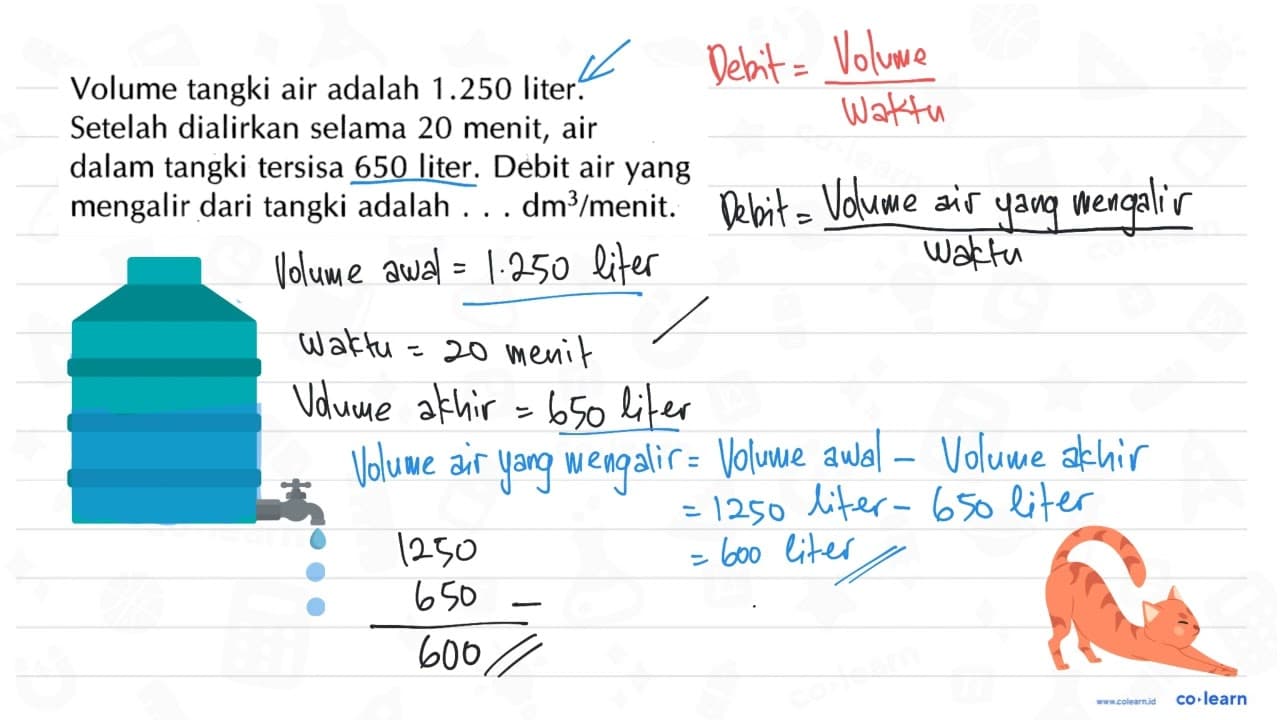 Volume tangki air adalah 1.250 liter.
Setelah dialirkan selama 20 menit, air
dalam tangki tersisa 650 liter. Debit air yang
mengalir dari tangki adalah . . . dm³/menit.
Debit = Volume
Waktu
Debit = Volume air yang mengalir
Waktu
Volume awal = 1.250 liter
Waktu = 20 menit
Volume akhir = 650 liter
Volume air yang mengalir = Volume awal - Volume akhir
= 1250 liter - 650 liter
= 600 liter
1250
650 -
600
www.colearn.id co·learn